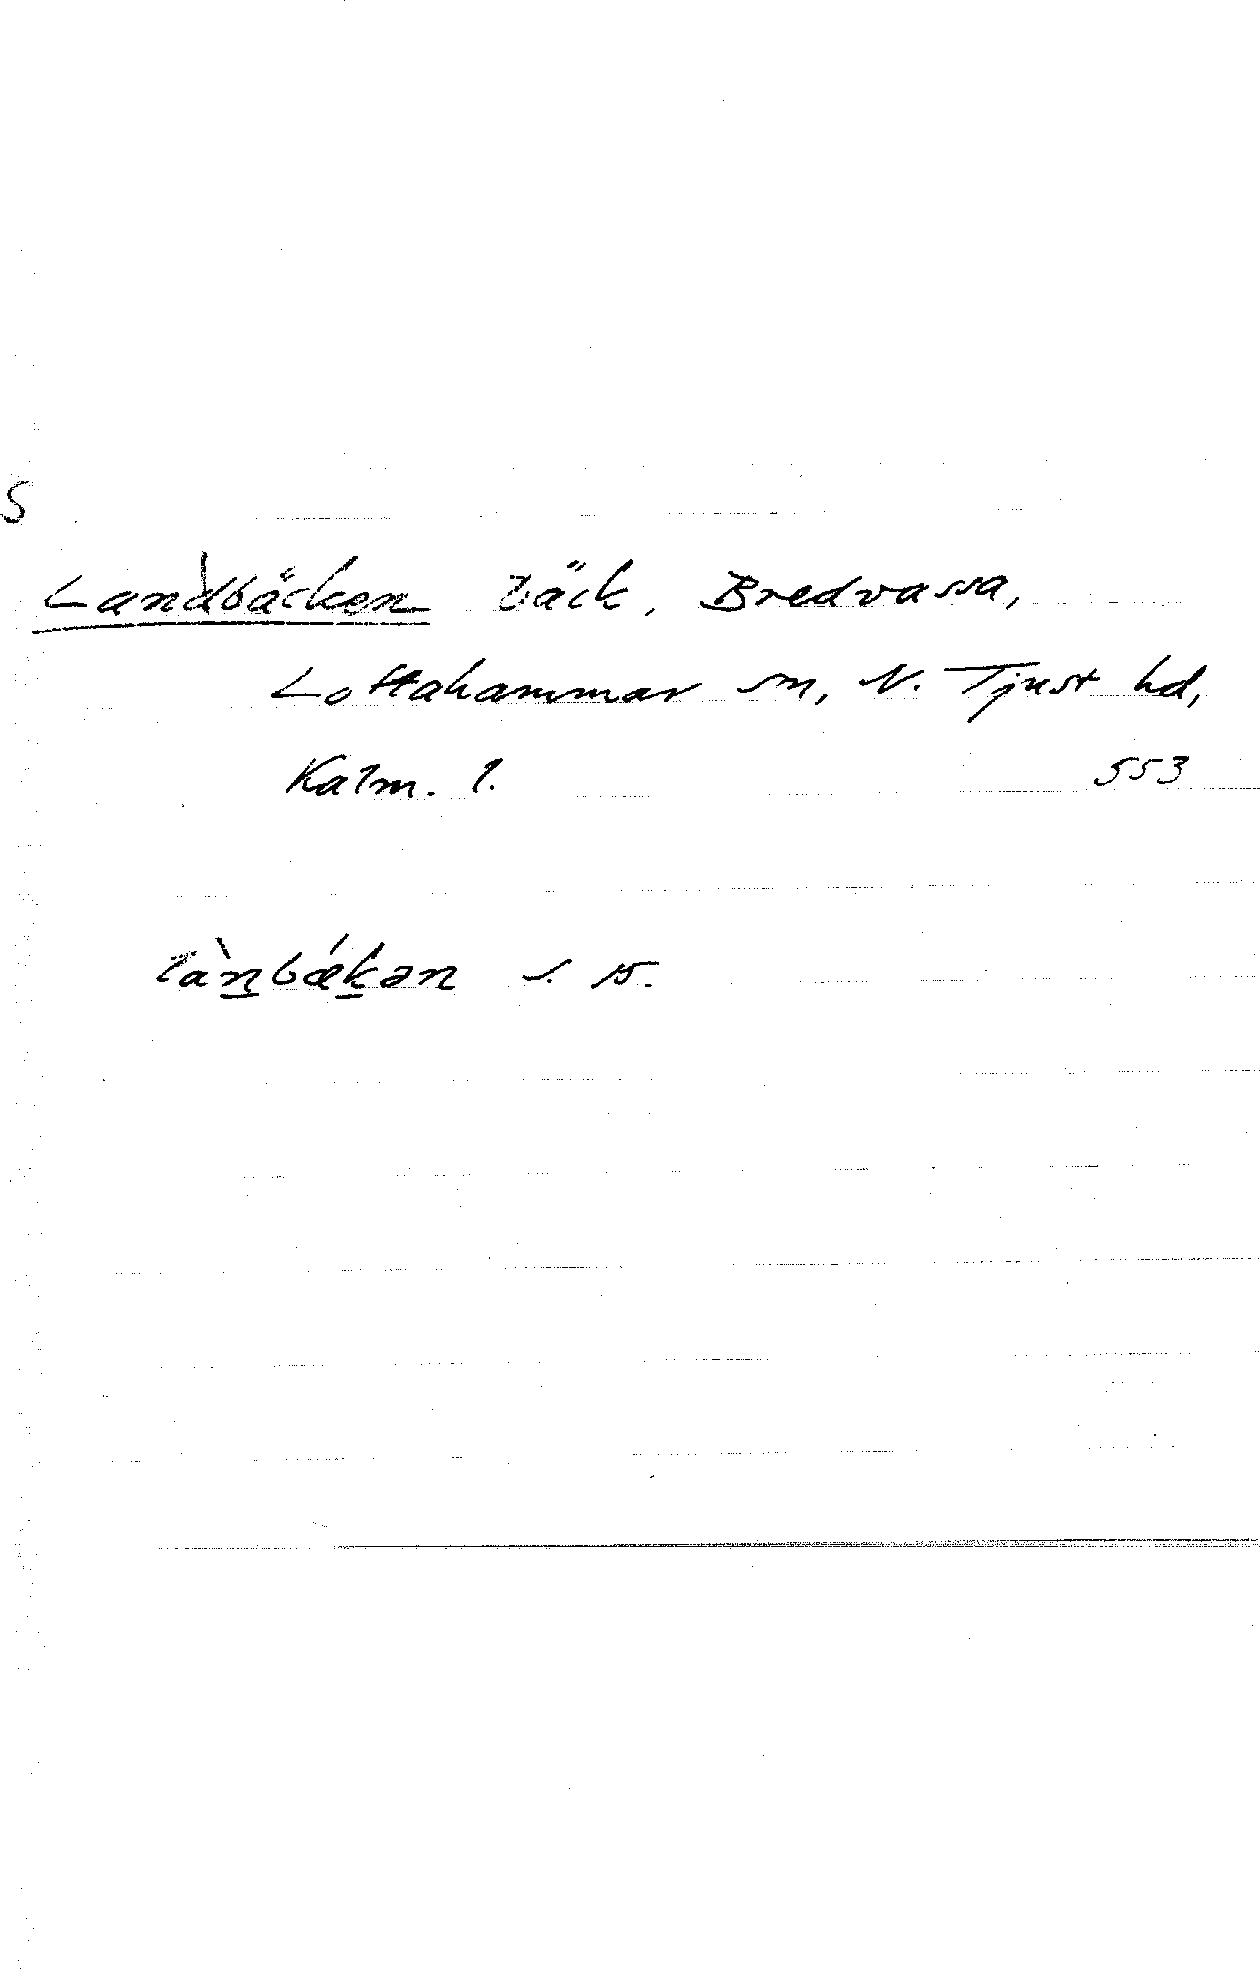 S
Landbäcken bäck, Bredvassa,
Loftahammar sn, N. Tjust hd,
Kalm. l. 553
lànbǽkən s. 15.